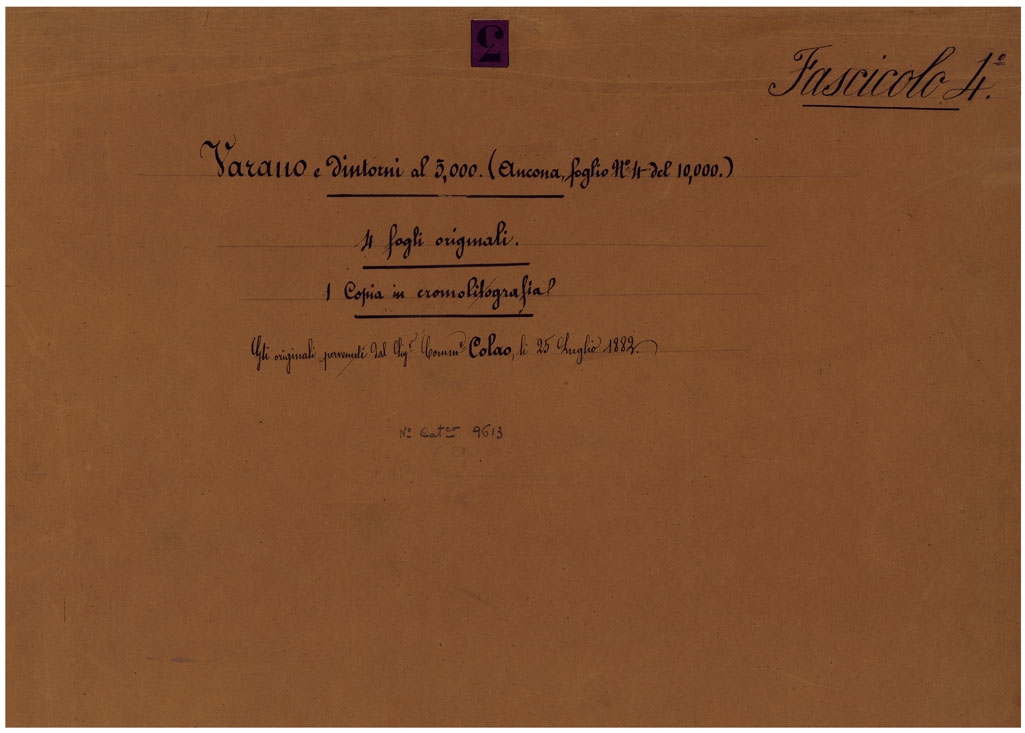 Fascicolo 4.º
Varano e dintorni al 5,000. (Ancona, foglio Nº 4 del 10,000.)
4 fogli originali.
1 Copia in cromolitografia
Gli originali pervenuti dal Sig.r Comm.e Colao, li 25 Luglio 1882.
Nº 9613